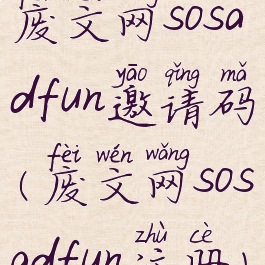 废文网sosa
yāo qǐng mǎ
dfun邀请码
fèi wén wǎng
（废文网sos
zhù cè
adfun注册）